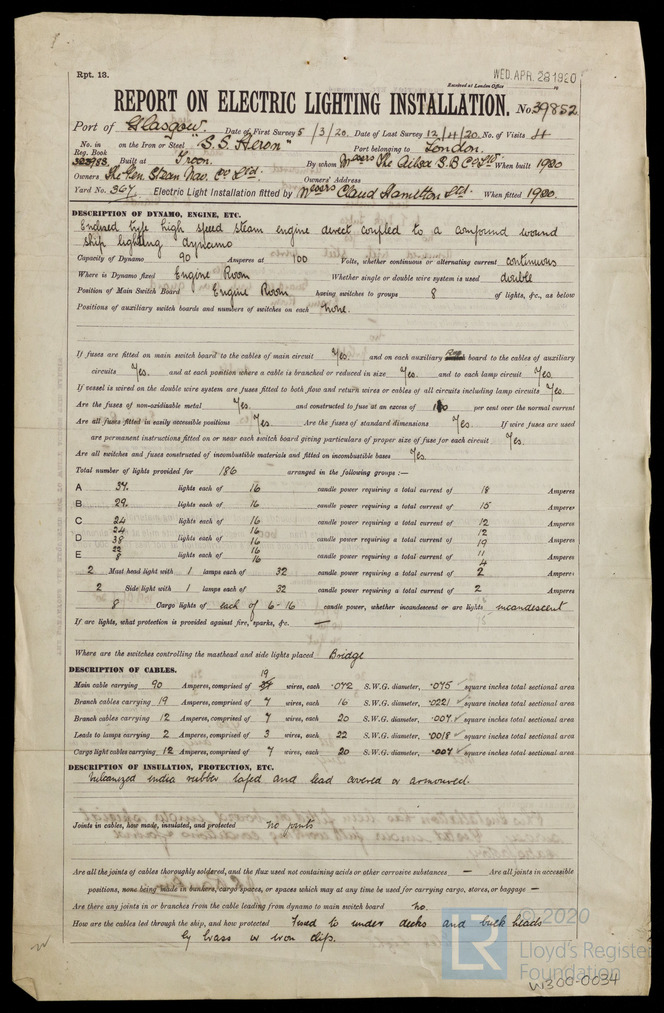 Rpt. 13.
WED. APR. 28 1920
Received at London Office
REPORT ON ELECTRIC LIGHTING INSTALLATION. No. 39852
Port of Glasgow. Date of First Survey 5/3/20. Date of Last Survey 12/4/20. No. of Visits 4
No. in on the Iron or Steel "S.S. Heron" Port belonging to London.
Reg. Book Built at Troon. By whom Messrs The Ailsa S.B. Co Ltd When built 1920
Owners The Gen Steam Nav. Co Ltd. Owners' Address
Yard No. 367 Electric Light Installation fitted by Messrs Claud Hamilton Ltd. When fitted 1920.
DESCRIPTION OF DYNAMO, ENGINE, ETC.
Enclosed type high speed steam engine direct coupled to a compound wound
ship lighting dynamo
Capacity of Dynamo 90 Amperes at 100 Volts, whether continuous or alternating current continuous
Where is Dynamo fixed Engine Room Whether single or double wire system is used double
Position of Main Switch Board Engine Room having switches to groups 8 of lights, &c., as below
Positions of auxiliary switch boards and numbers of switches on each none.
If fuses are fitted on main switch board to the cables of main circuit Yes. and on each auxiliary board to the cables of auxiliary
circuits Yes. and at each position where a cable is branched or reduced in size Yes. and to each lamp circuit Yes.
If vessel is wired on the double wire system are fuses fitted to both flow and return wires or cables of all circuits including lamp circuits Yes.
Are the fuses of non-oxidisable metal Yes. and constructed to fuse at an excess of 100 per cent over the normal current
Are all fuses fitted in easily accessible positions Yes. Are the fuses of standard dimensions Yes. If wire fuses are used
are permanent instructions fitted on or near each switch board giving particulars of proper size of fuse for each circuit Yes.
Are all switches and fuses constructed of incombustible materials and fitted on incombustible bases Yes.
Total number of lights provided for 186 arranged in the following groups :—
A 37. lights each of 16 candle power requiring a total current of 18 Amperes
B 29. lights each of 16 candle power requiring a total current of 15 Amperes
C 24 lights each of 16 candle power requiring a total current of 12 Amperes
24 16 12
D 38 lights each of 16 candle power requiring a total current of 19 Amperes
22 16 11
E 8 lights each of 16 candle power requiring a total current of 4 Amperes
2 Mast head light with 1 lamps each of 32 candle power requiring a total current of 2 Amperes
2 Side light with 1 lamps each of 32 candle power requiring a total current of 2 Amperes
8 Cargo lights of each of 6-16 candle power, whether incandescent or arc lights incandescent
If arc lights, what protection is provided against fire, sparks, &c. —
Where are the switches controlling the masthead and side lights placed Bridge
DESCRIPTION OF CABLES.
Main cable carrying 90 Amperes, comprised of 19 wires, each .072 S.W.G. diameter, .075 square inches total sectional area
Branch cables carrying 19 Amperes, comprised of 7 wires, each 16 S.W.G. diameter, .0221 square inches total sectional area
Branch cables carrying 12 Amperes, comprised of 7 wires, each 20 S.W.G. diameter, .007 square inches total sectional area
Leads to lamps carrying 2 Amperes, comprised of 3 wires, each 22 S.W.G. diameter, .0018 square inches total sectional area
Cargo light cables carrying 12 Amperes, comprised of 7 wires, each 20 S.W.G. diameter, .007 square inches total sectional area
DESCRIPTION OF INSULATION, PROTECTION, ETC.
Vulcanized india rubber taped and lead covered or armoured.
Joints in cables, how made, insulated, and protected no joints
Are all the joints of cables thoroughly soldered, and the flux used not containing acids or other corrosive substances — Are all joints in accessible
positions, none being made in bunkers, cargo spaces, or spaces which may at any time be used for carrying cargo, stores, or baggage —
Are there any joints in or branches from the cable leading from dynamo to main switch board no.
How are the cables led through the ship, and how protected Fixed to under decks and bulk heads
by brass or iron clips.
© 2020
LR
Lloyd's Register
Foundation
W300-0034